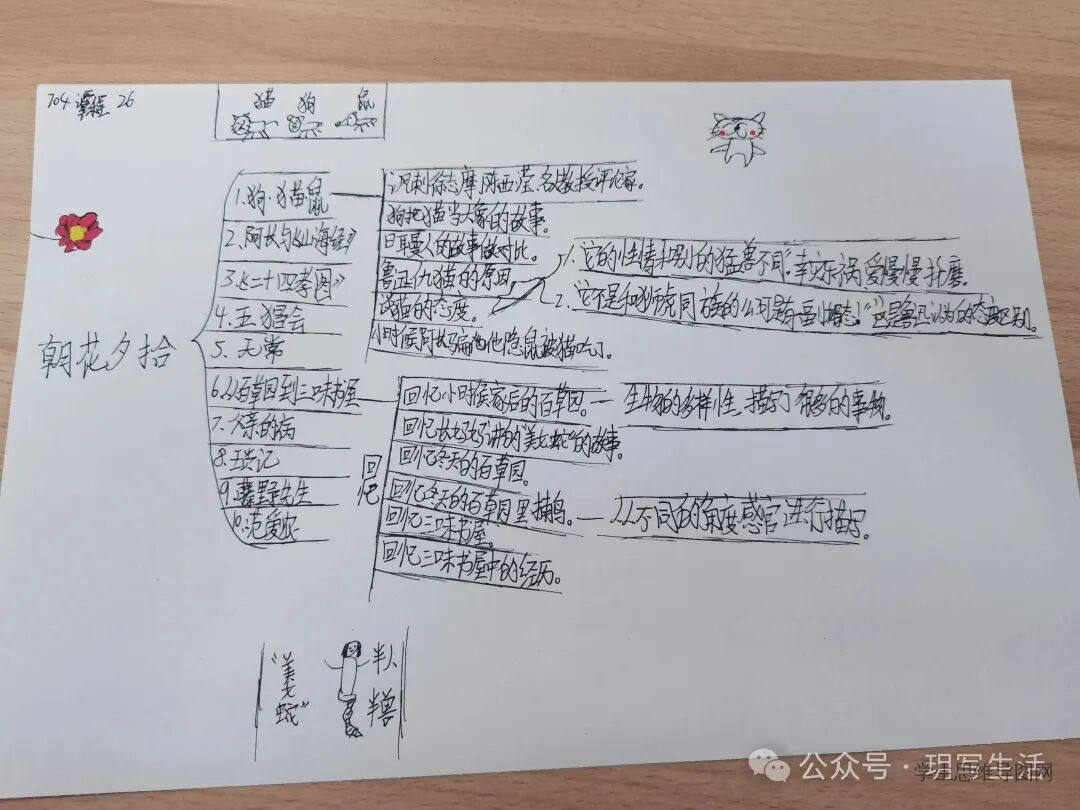 704 26
猫 狗 鼠
朝花夕拾
1.狗·猫·鼠
2.阿长与《山海经》
3.《二十四孝图》
4.五猖会
5.无常
6.从百草园到三味书屋
7.父亲的病
8.琐记
9.藤野先生
10.范爱农
讽刺徐志摩,陈西滢,名教授评论家。
狗把猫当大象的故事。
日耳曼人的故事做对比。
鲁迅仇猫的原因。
说猫的态度。
小时候阿长骗他他隐鼠被猫吃了。
1.“它的性情和别的猛兽不同”幸灾乐祸爱慢慢折磨。
2.“它不是和狮虎同族的么可是有一副媚态”这是鲁迅认为的态度区别。
回忆
回忆小时候家后的百草园。
回忆长妈妈讲的“美女蛇”的故事。
回忆冬天的百草园。
回忆冬天的百草园里捕鸟。
回忆三味书屋。
回忆三味书屋中的经历。
生物的多样性,描写了很多的事物。
从不同的角度感官进行描写。
“美女蛇”
半人
半兽
公众号·玥写生活
学生思维导图网